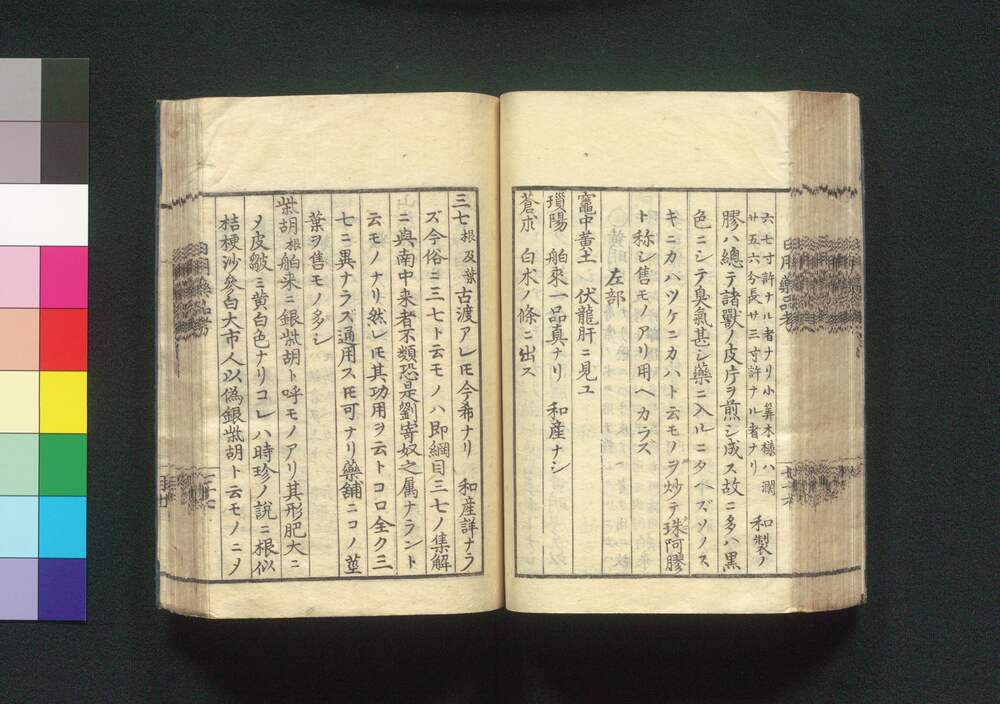 六七寸許ナル者ナリ小算木樣ハ濶
廿五六分長廿三寸許ナル者ナリ 和製ノ
膠ハ總テ諸獸ノ皮庁ヲ煎シ成ス故ニ多ハ黒
色ニシテ臭氣甚シ藥ニ入ルニタヘズソノス
キニカハツケニカハト云モノヲ炒テ珠阿膠
ト称シ售モノアリ用ヘカラス
左部
竈中黄土 伏龍肝ニ見ユ
瑣陽 舶來一品真ナリ 和産ナシ
蒼朮 白朮ノ條ニ出ス
三七根及葉古渡アレ𪜈今希ナリ 和産詳ナラ
ズ今俗ニ三七ト云モノハ即綱目三七ノ集解
ニ與南中来者不類恐是劉寄奴之属ナラント
云モノナリ然レ𪜈其功用ヲ云トコロ全ク三
七ニ異ナラス通用ス𪜈可ナリ藥舗ニコノ莖
葉ヲ售モノ多シ
柴胡根舶来ニ銀柴胡ト呼モノアリ其形肥大ニ
ノ皮皺ミ黄白色ナリコレハ時珍ノ說ニ根似
桔梗沙參白大市人以偽銀柴胡ト云モノニメ